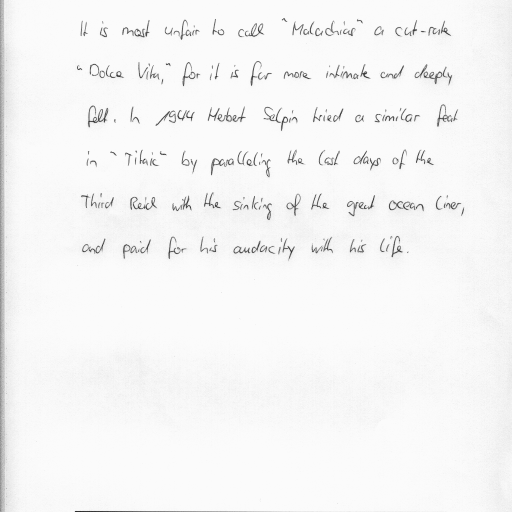 It is most unfair to call "Malachias" a cut-rate
"Dolce Vita," for it is far more intimate and deeply
felt. In 1944 Herbert Selpin tried a similar feat
in "Titanic" by paralleling the last days of the
Third Reich with the sinking of the great ocean liner,
and paid for his audacity with his life.